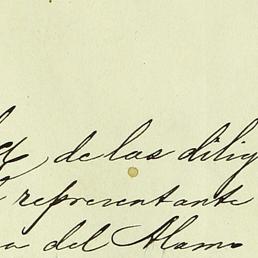 de las dilig
representante
del Alamo